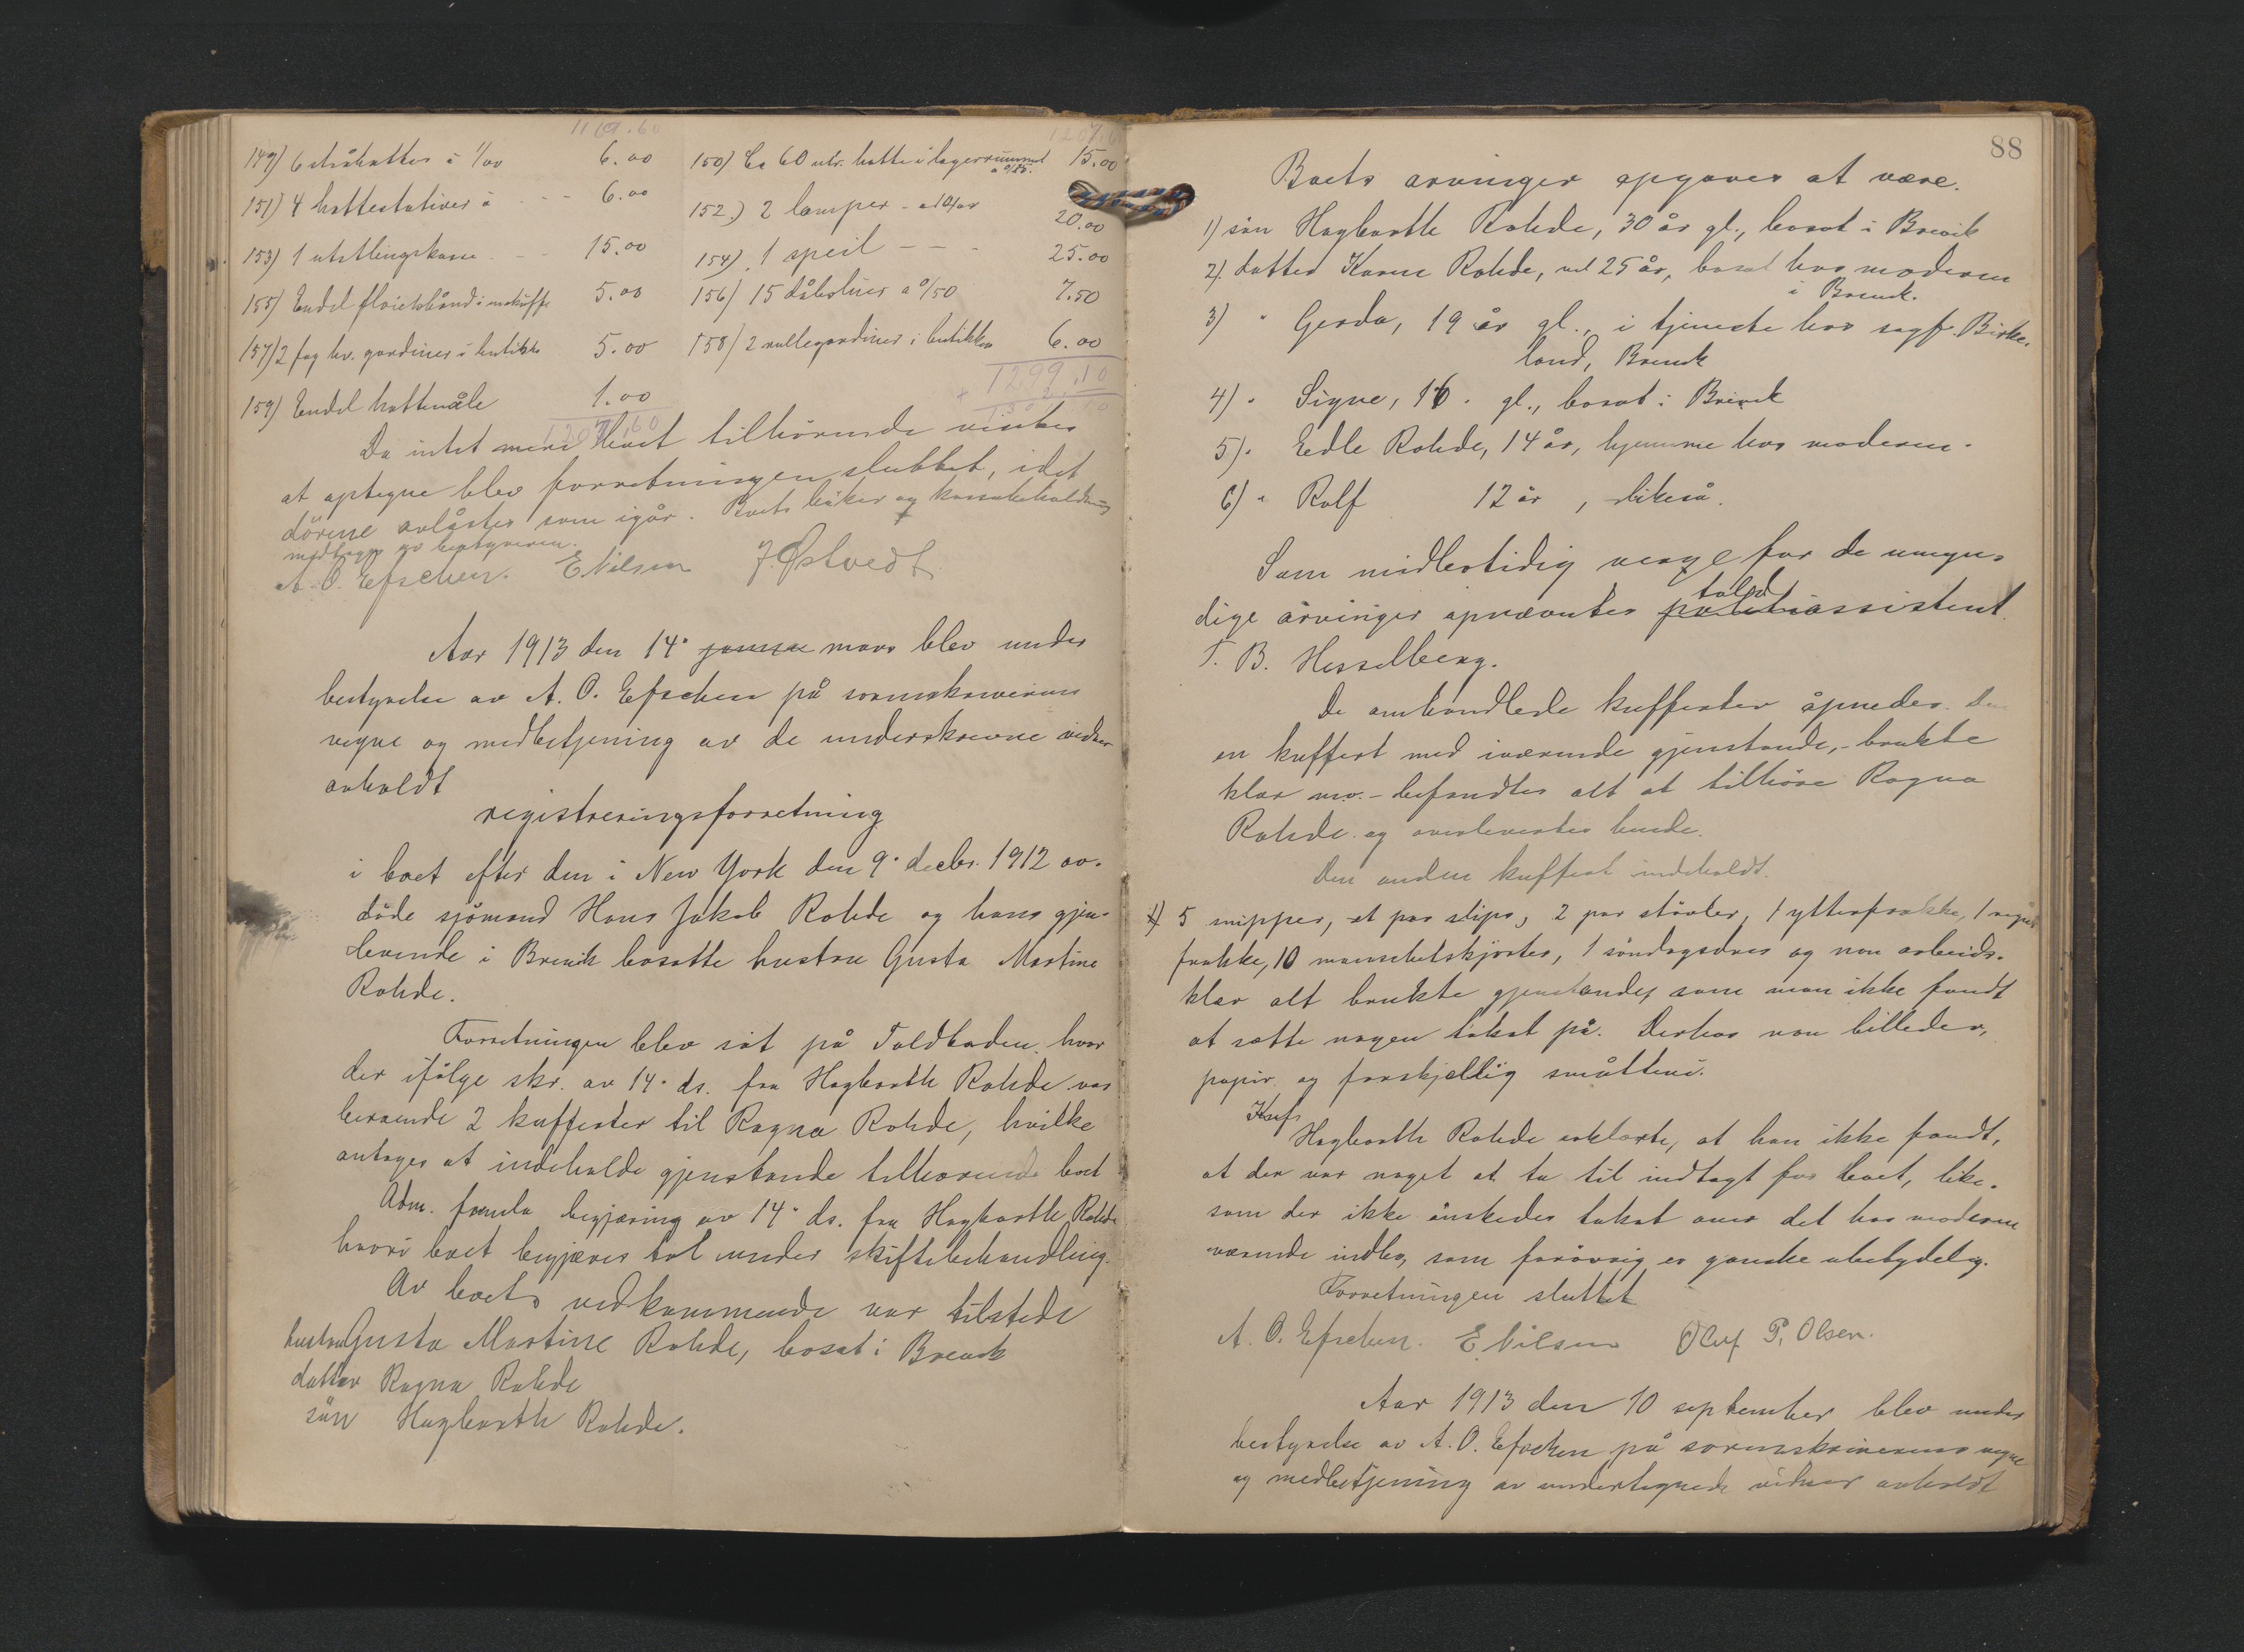 1161.60
149) 6 stråhatter à 1/00 6.00
151) 4 hattestativer à - - - 6.00
153) 1 utstillingskasse - - 15.00
155) Endel fløielsbånd i en skuffe 5.00
157) 2 fag hv. gardiner i butikk 5.00
159) Endel hattenåle 1.00
1207.60
150) Ca 60 utr. hatte i lagerrummet à 0/25. 15.00
152.) 2 lamper - à 10/00 20.00
154) 1 speil - - - 25.00
156) 15 dåhslues à 0/50 7.50
158) 2 rullegardiner i butikken 6.00
1299.10
Da intet mere boet tilhørende vistes
at optegne blev forretningen sluttet, idet
dörene avlåstes som igår. Boets bøker og kassabeholdning
medtoges av bestyreren.
A. O. Efschen. E Nilsen J. Østvedt
Aar 1913 den 14. januar mars blev under
bestyrelse av A. O. Efschen på sorenskriverens
vegne og medbetjening av de underskrevne vidner
avholdt
registreringsforretning
i boet efter den i New York den 9. decbr. 1912 av-
døde sjömand Hans Jakob Rohde og hans gjen-
levende i Brevik bosatte hustru Gusta Martine
Rohde.
Forretningen blev sat på Toldboden, hvor
der ifølge skr. av 14. ds. fra Hagbarth Rohde var
beroende 2 kufferter til Ragna Rohde, hvilke
antages at indeholde gjenstande tilhörende boet
Adm. fremla begjæring av 14. ds. fra Hagbarth Rohde
hvori boet begjæres tat under skiftebehandling.
Av boets vedkommende var tilstede
hustru Gusta Martine Rohde, bosat i Brevik
datter Ragna Rohde
sön Hagbarth Rohde.
88
Boets arvinger opgaves at være.
1) sön Hagbarth Rohde, 30 år gl., bosat i Brevik
2). datter Karen Rohde, vel 25 år, bosat hos moderen
i Brevik.
3) " Gerda, 19 år gl., i tjeneste hos sagf. Birke-
land, Brevik
4) " Signe, 16 " gl., bosat i Brevik
5) " Edle Rohde, 14 år, hjemme hos moderen.
6) " Rolf 12 år, likeså.
Som midlertidig verge for de umyn-
dige arvinger opnævntes toldassistent
T. B. Hesselberg.
De omhandlede kufferter åpnedes. Den
en kuffert med iværende gjenstande, - brukte
klær mv. - befandtes alt at tilhöre Ragna
Rohde og overleveres hende.
Den anden kuffert indeholdt.
1) 5 snipper, et par slips, 2 par støvler, 1 ytterfrakke, 1 regn-
frakke, 10 mansjetskjorter, 1 söndagsdres og non arbeids-
klær alt brukte gjenstande, som man ikke fandt
at sætte nogen takst på. Derhos non billeder,
papir og forskjellig småtteri.
Hagbarth Rohde erklærte, at han ikke fandt,
at der var noget at ta til indtægt for boet, like-
som der ikke önskedes takst over det hos moderen
værende indbo, som forövrig er ganske ubetydelig.
Forretningen sluttet
A. O. Efschen. E Nilsen Oluf P. Olsen.
Aar 1913 den 10 september blev under
bestyrelse av A. O. Efschen på sorenskriverens vegne
og medbetjening av undertegnede vidner avholdt